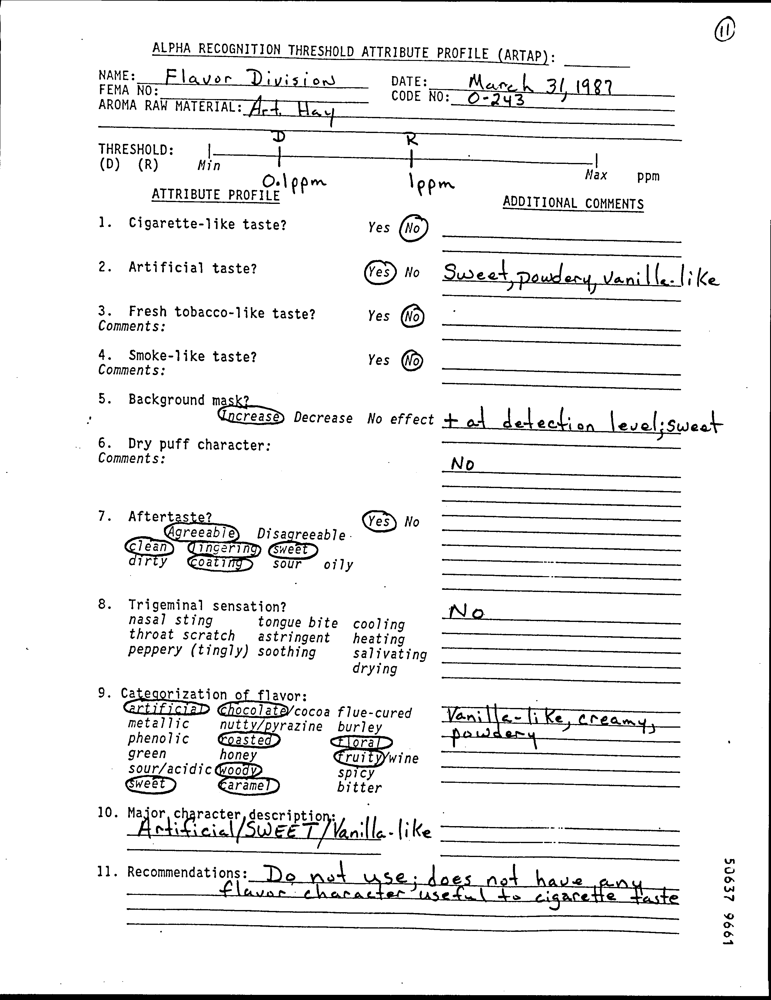 11
ALPHA RECOGNITION THRESHOLD ATTRIBUTE PROFILE (ARTAP):
NAME: Flavor Division DATE: March 31, 1987
FEMA NO: CODE NO: O-243
AROMA RAW MATERIAL: Art. Hay
D R
THRESHOLD:
(D) (R) Min Max ppm
0.1ppm 1ppm
ATTRIBUTE PROFILE ADDITIONAL COMMENTS
1. Cigarette-like taste? Yes No
2. Artificial taste? Yes No Sweet, powdery, vanilla-like
3. Fresh tobacco-like taste? Yes No
Comments:
4. Smoke-like taste? Yes No
Comments:
5. Background mask?
Increase Decrease No effect + at detection level; sweet
6. Dry puff character:
Comments: No
7. Aftertaste? Yes No
Agreeable Disagreeable
clean lingering sweet
dirty coating sour oily
8. Trigeminal sensation? No
nasal sting tongue bite cooling
throat scratch astringent heating
peppery (tingly) soothing salivating
drying
9. Categorization of flavor:
artificial chocolate/cocoa flue-cured Vanilla-like, creamy,
metallic nutty/pyrazine burley
phenolic roasted floral powdery
green honey fruity/wine
sour/acidic woody spicy
sweet caramel bitter
10. Major character description:
Artificial/SWEET/Vanilla-like
11. Recommendations: Do not use; does not have any
flavor character useful to cigarette taste
50637 9661